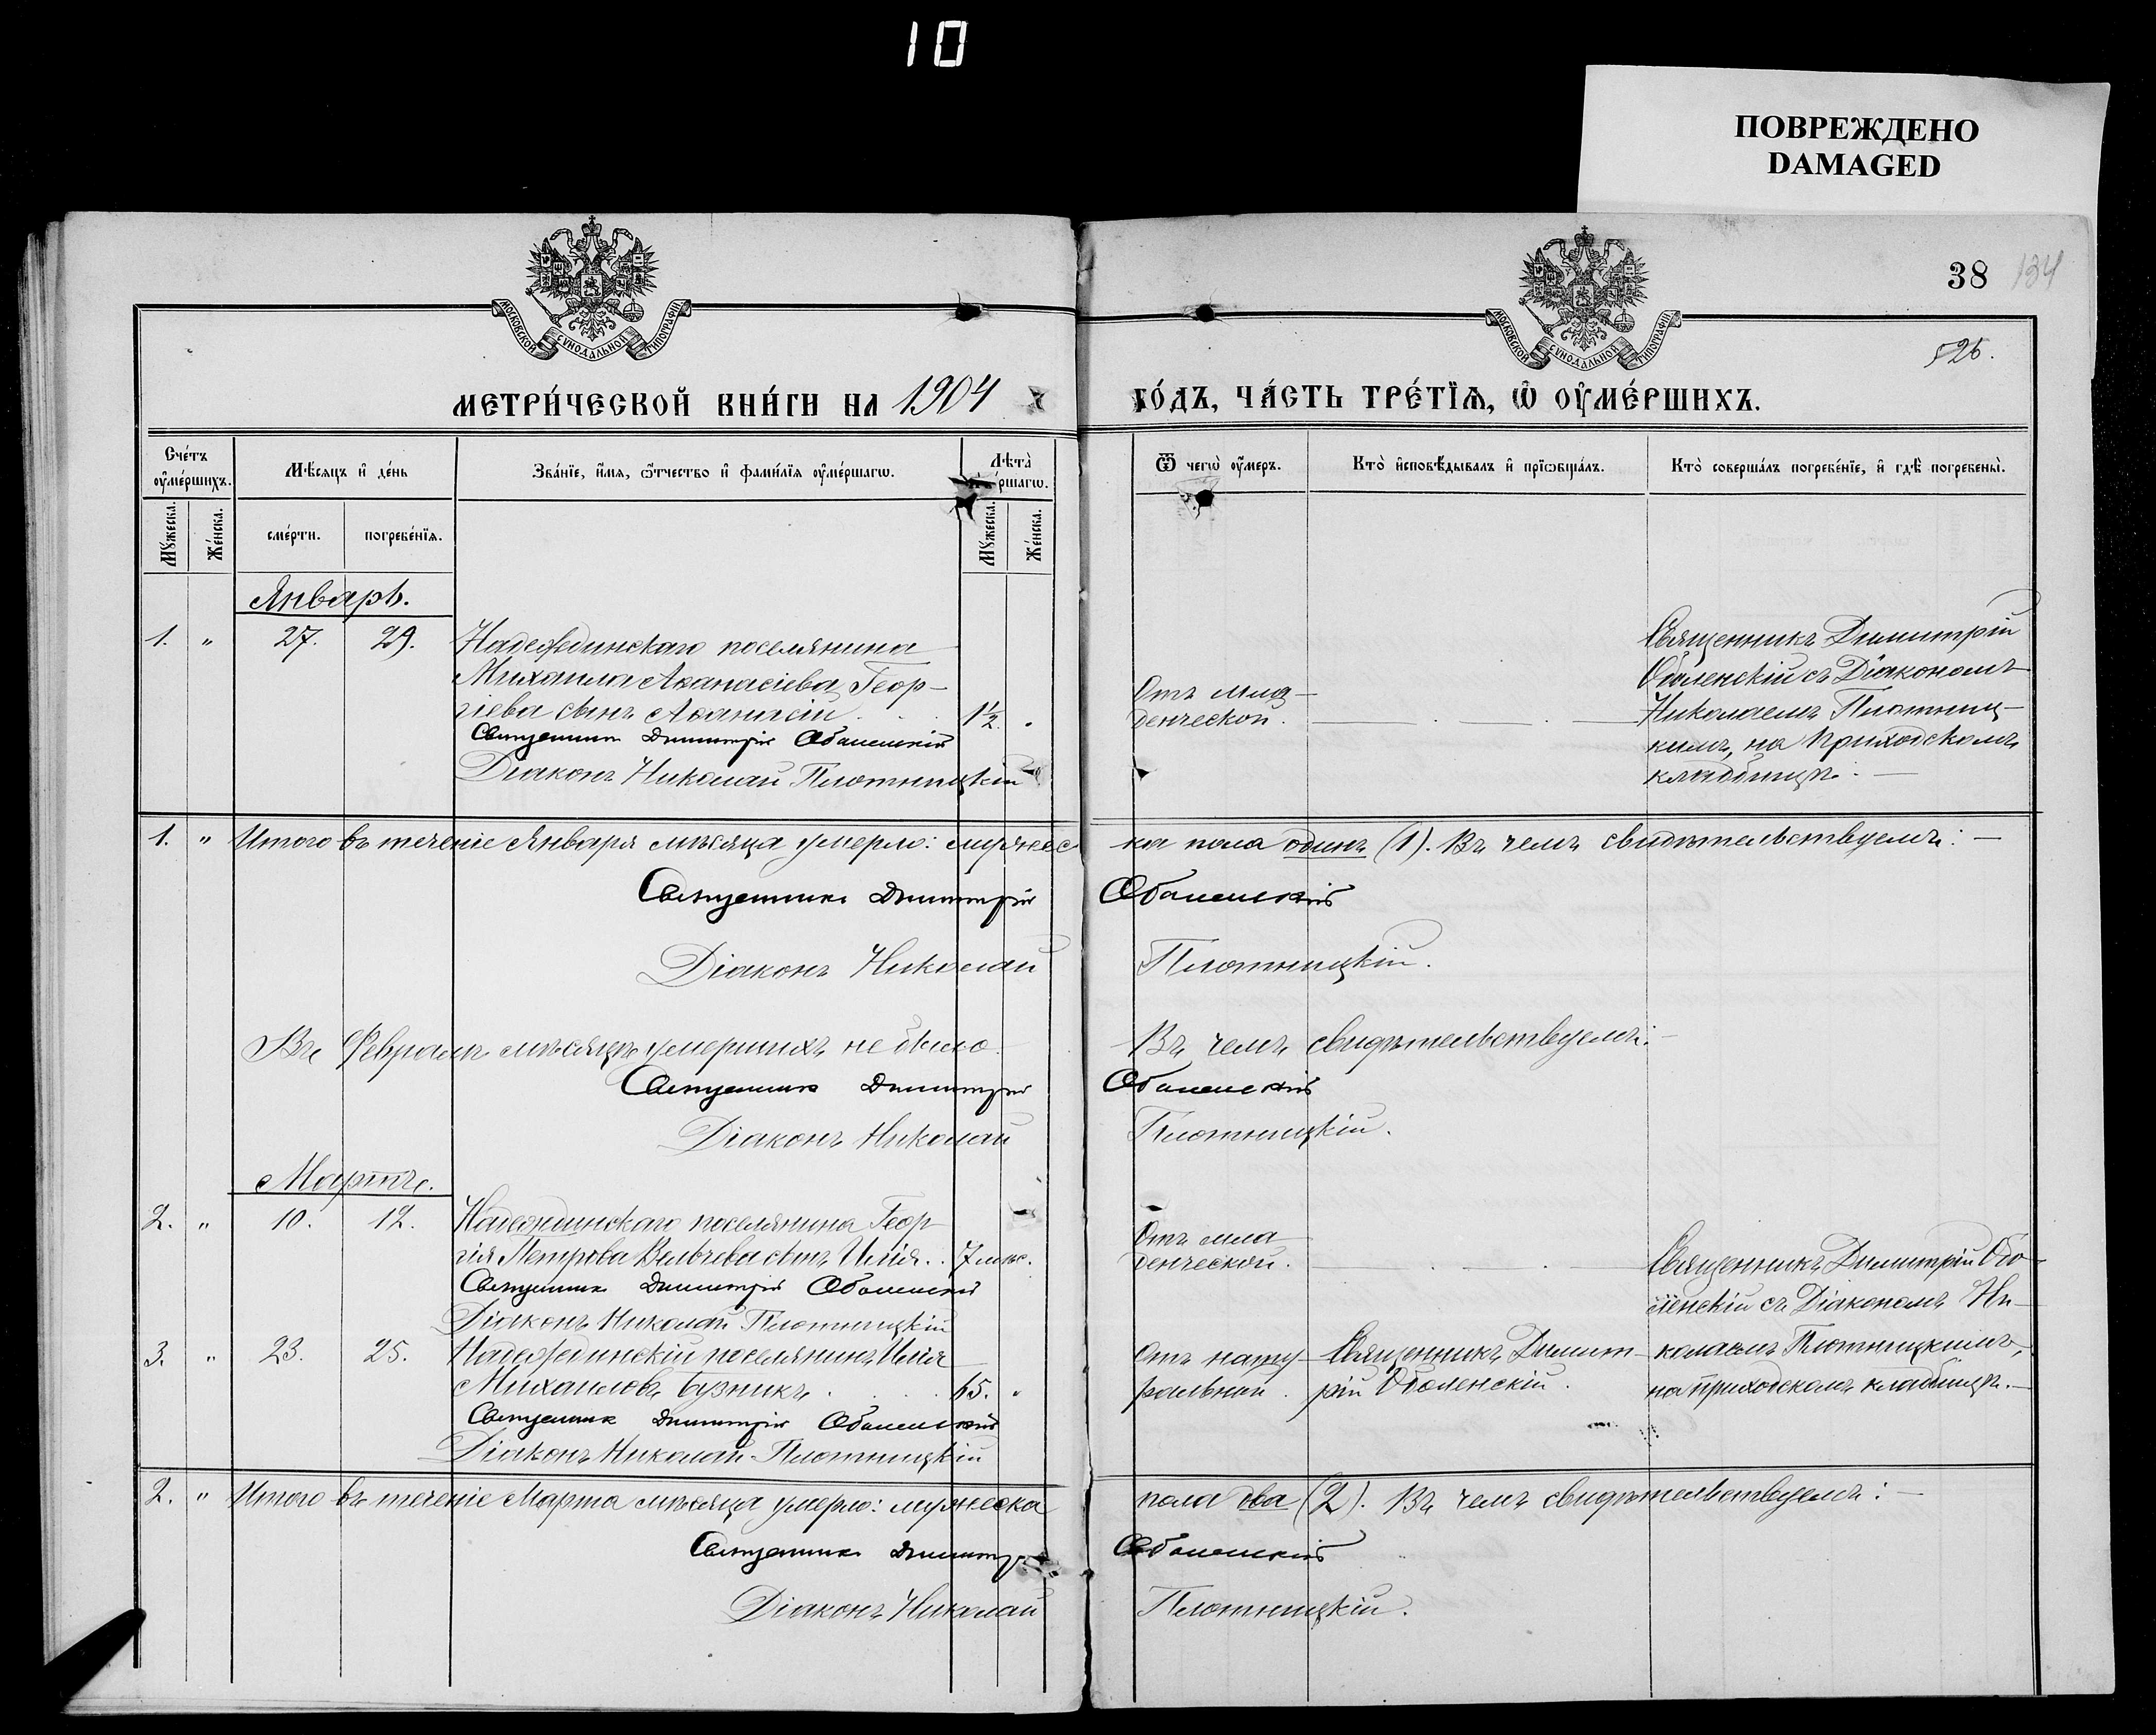 10
ПОВРЕЖДЕНО
DAMAGED
МОСКОВСКОЙ СѴНОДАЛЬНОЙ ТИПОГРАФІИ
МОСКОВСКОЙ СѴНОДАЛЬНОЙ ТИПОГРАФІИ
38 134
526.
МЕТРИ́ЧЕСКОЙ КНИ́ГИ НА 1904
ГО́ДЪ, ЧА́СТЬ ТРЕ́ТЇѦ, Ѿ ОУ҆МЕ́РШИХЪ.
Сче́тъ оу҆ме́ршихъ.
Мꙋ́жеска.
Же́нска.
Мѣ́сяцъ и҆ де́нь
сме́рти.
погребе́нїѧ.
Зва́нїе, и҆́мѧ, ѻ҆́тчество и҆ фами́лїѧ оу҆ме́ршагѡ.
Лѣта̀
ршагѡ.
Мꙋ́жеска.
Же́нска.
Ѿ чегѡ̀ оу҆́меръ.
Кто̀ и҆сповѣ́дывалъ и҆ прїѡбща́лъ.
Кто̀ соверша́лъ погребе́нїе, и҆ гдѣ̀ погребены̀.
Январь.
1. " 27. 29. Надеждинскаго поселянина
Михаила Аѳанасіева Геор-
гіева сынъ Аѳанасій . . 1½ "
Священникъ Димитрій Оболенскій
Діаконъ Николай Плотницкій
Отъ мла-
денческой.
Священникъ Димитрій
Оболенскій съ Діакономъ
Николаемъ Плотниц-
кимъ, на приходскомъ
кладбищѣ. —
1. " Итого въ теченіе Января мѣсяца умерло: мужес
ка пола одинъ (1). Въ чемъ свидѣтельствуемъ: —
Священникъ Димитрій Оболенскій
Діаконъ Николай Плотницкій.
Въ Февралѣ мѣсяцѣ умершихъ не было.
Въ чемъ свидѣтельствуемъ: —
Священникъ Димитрій Оболенскій
Діаконъ Николай Плотницкій.
Мартъ.
2. " 10. 12. Надеждинскаго поселянина Геор-
гія Петрова Вельчева сынъ Илія . . 7 мѣс.
Священникъ Димитрій Оболенскій
Діаконъ Николай Плотницкій
Отъ мла-
денческой.
Священникъ Димитрій Обо-
ленскій съ Діакономъ Ни-
колаемъ Плотницкимъ,
на приходскомъ кладбищѣ. —
3. " 23. 25. Надеждинскій поселянинъ Илія
Михаиловъ Бузникъ . . . 65. "
Священникъ Димитрій Оболенскій
Діаконъ Николай Плотницкій
Отъ нату-
ральной.
Священникъ Димит-
рій Оболенскій.
2. " Итого въ теченіе Марта мѣсяца умерло: мужеска
пола два (2). Въ чемъ свидѣтельствуемъ: —
Священникъ Димитр Оболенскій
Діаконъ Николай Плотницкій.